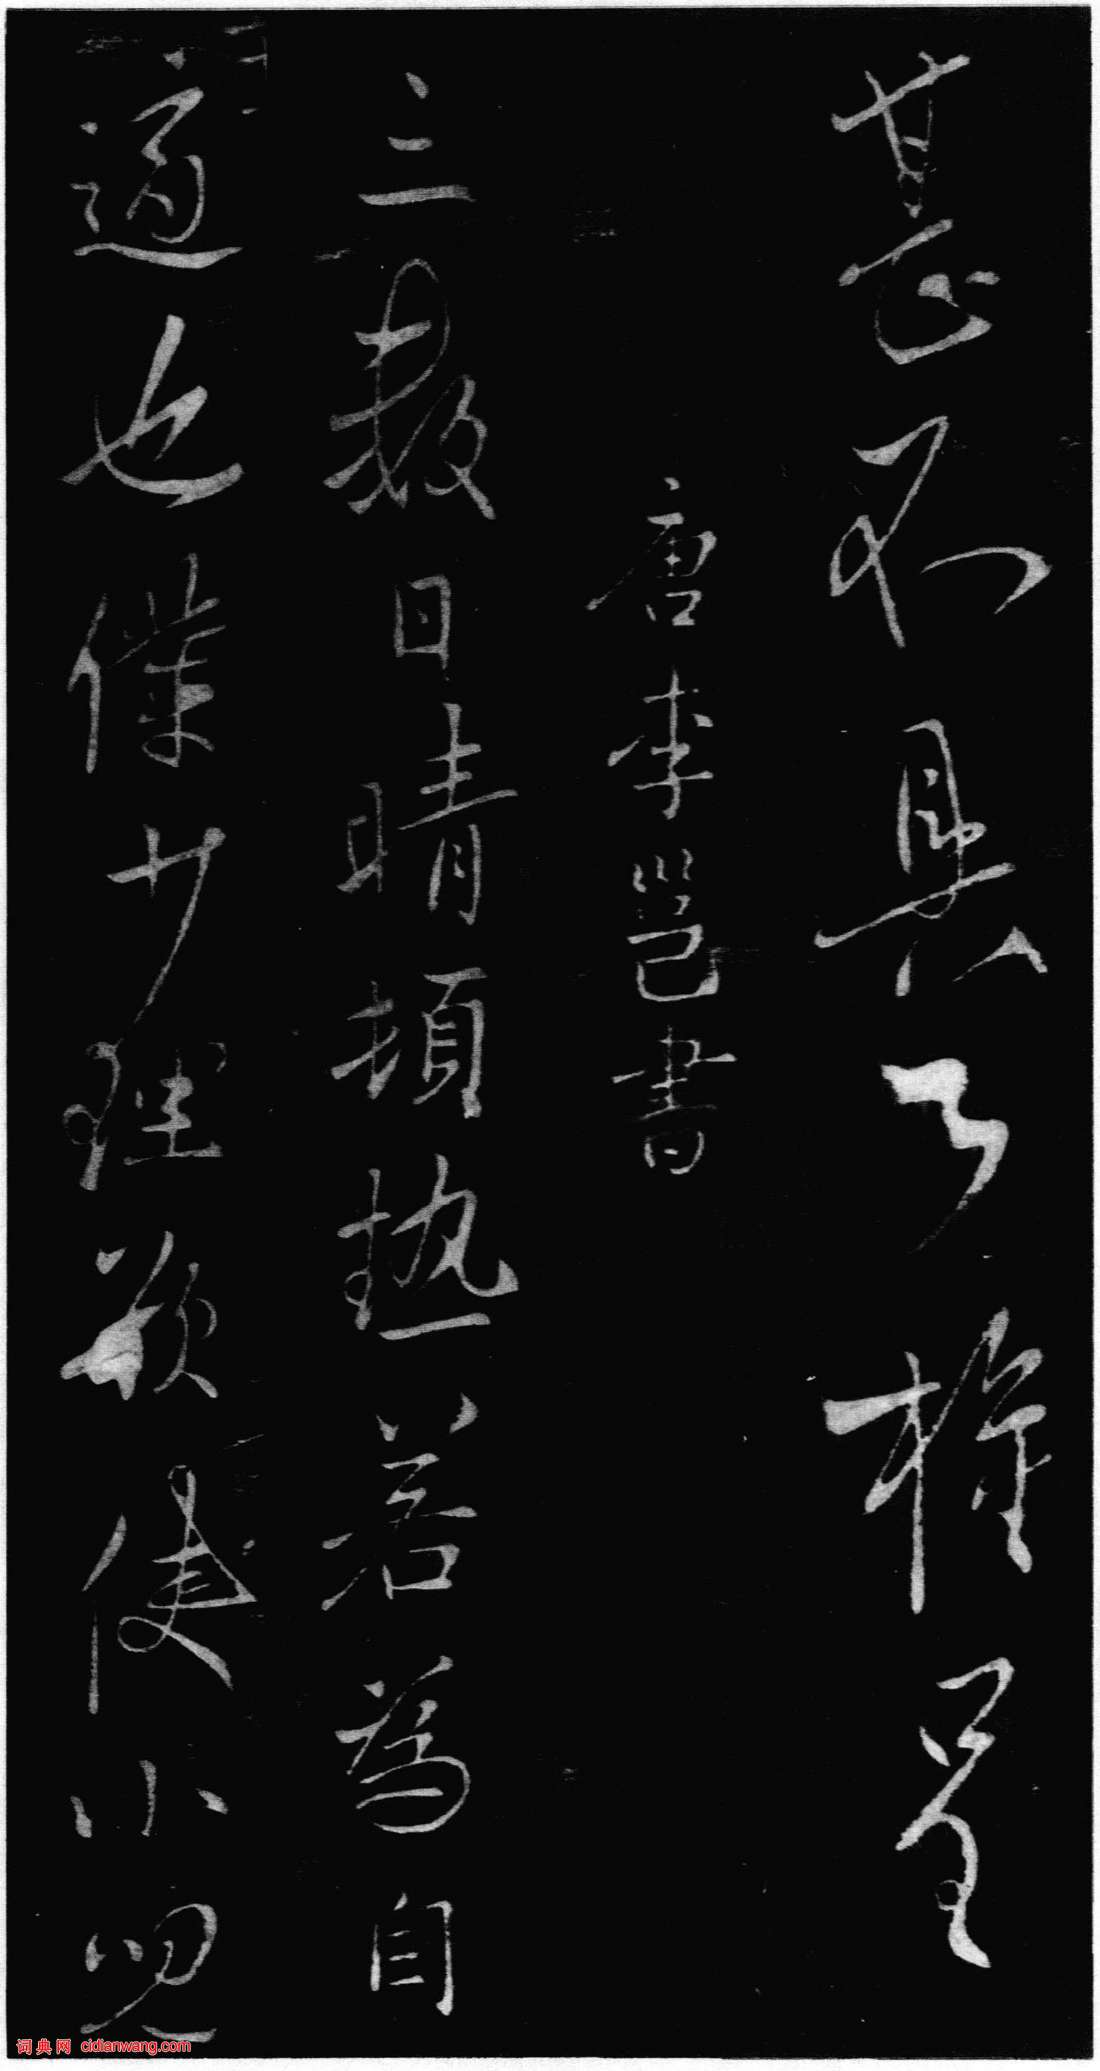 甚不具公權呈
唐李邕書
三數日晴頓熱若為自
適也僕少理欲使小兒
词典网 cidianwang.com